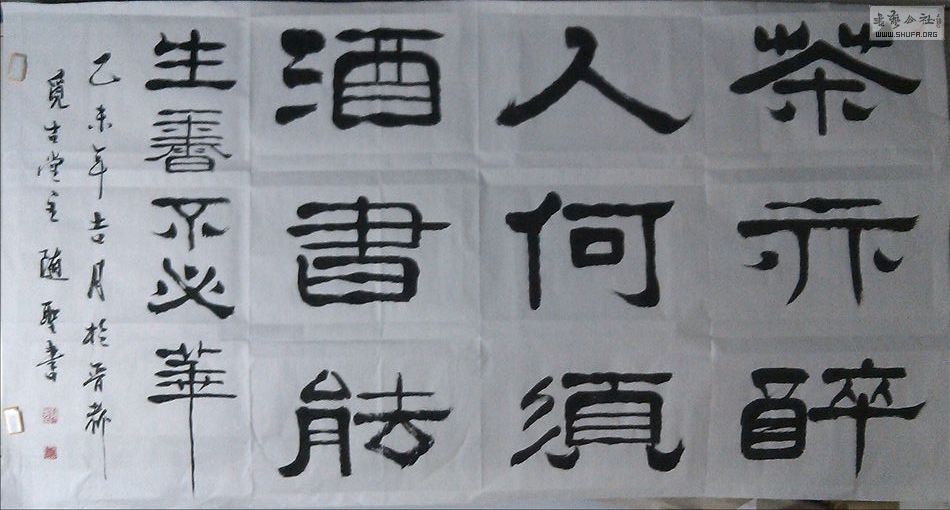 茶亦醉
人何須
酒書能
生香不必華
乙未年吉月於晋都
覓古堂主随聖書
書藝公社
WWW.SHUFA.ORG